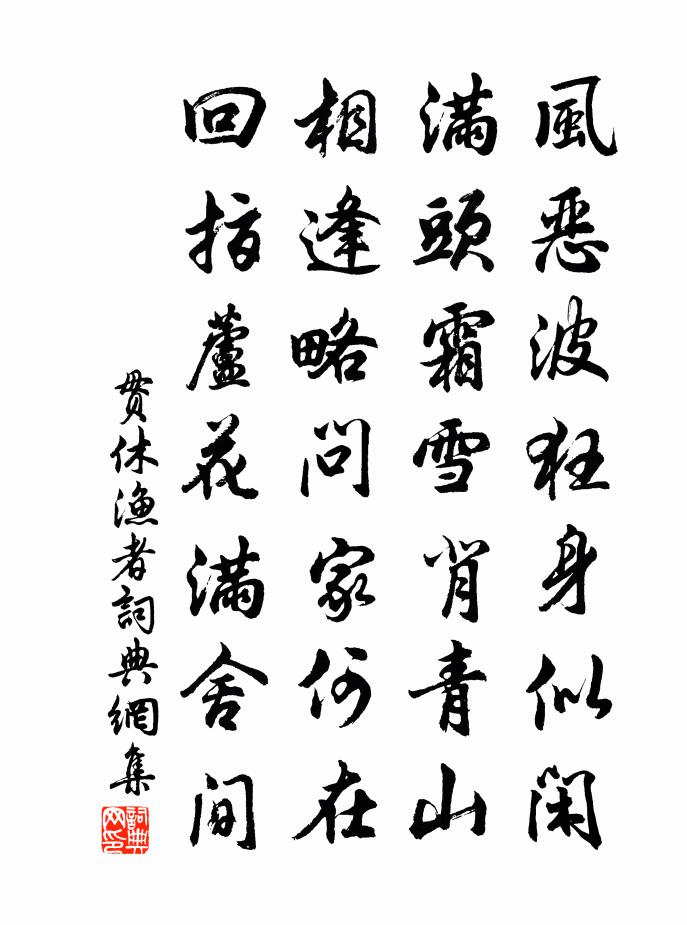 風惡波狂身似閑
滿頭霜雪背青山
相逢略問家何在
回指蘆花滿舍間
貫休漁者詞典網集
詞典網印